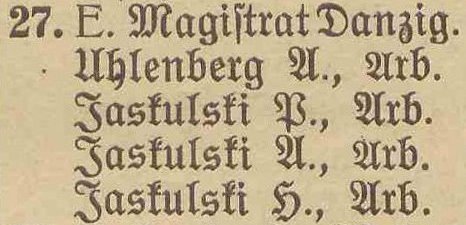 27. E. Magiſtrat Danzig.
Uhlenberg A., Arb.
Jaskulski P., Arb.
Jaskulski A., Arb.
Jaskulski H., Arb.